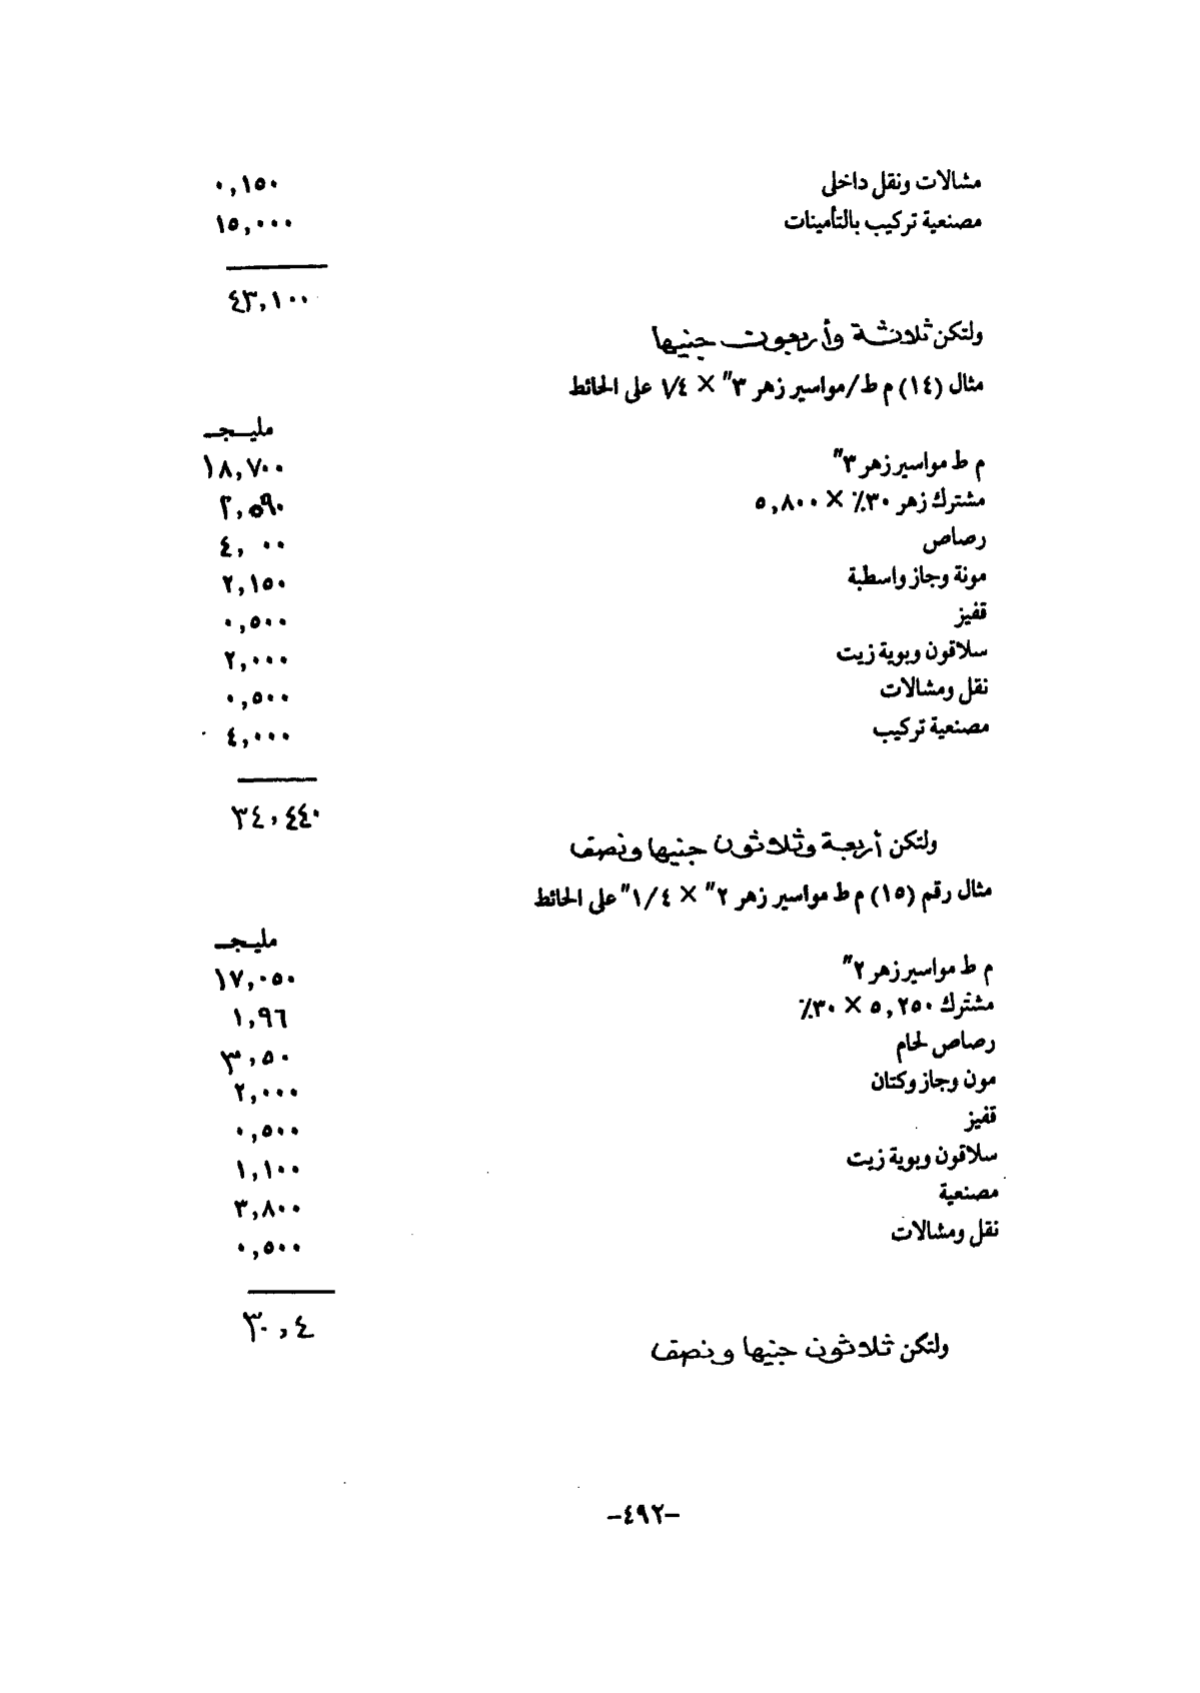 مشالات ونقل داخلى ٠,١٥٠
مصنعية تركيب بالتأمينات ١٥,٠٠٠
٤٣,١٠٠
ولتكن ثلاثة وأربعون جنيها
مثال (١٤) م ط/مواسير زهر ٣″ × ١/٤ على الحائط
مليـجـ
م ط مواسير زهر ٣″ ١٨,٧٠٠
مشترك زهر ٣٠٪ × ٥,٨٠٠ ٢,٥٩٠
رصاص ٤, ٠٠
مونة وجاز واسطبة ٢,١٥٠
قفيز ٠,٥٠٠
سلاقون وبوية زيت ٢,٠٠٠
نقل ومشالات ٠,٥٠٠
مصنعية تركيب ٤,٠٠٠
٣٤,٤٤٠
ولتكن أربعة وثلاثون جنيها ونصف
مثال رقم (١٥) م ط مواسير زهر ٢″ × ١/٤″ على الحائط
مليـجـ
م ط مواسير زهر ٢″ ١٧,٠٥٠
مشترك ٥,٢٥٠ × ٣٠٪ ١,٩٦
رصاص لحام ٣,٥٠
مون وجاز وكتان ٢,٠٠٠
قفيز ٠,٥٠٠
سلاقون وبوية زيت ١,١٠٠
مصنعية ٣,٨٠٠
نقل ومشالات ٠,٥٠٠
٣٠,٤
ولتكن ثلاثون جنيها ونصف
-٤٩٢-